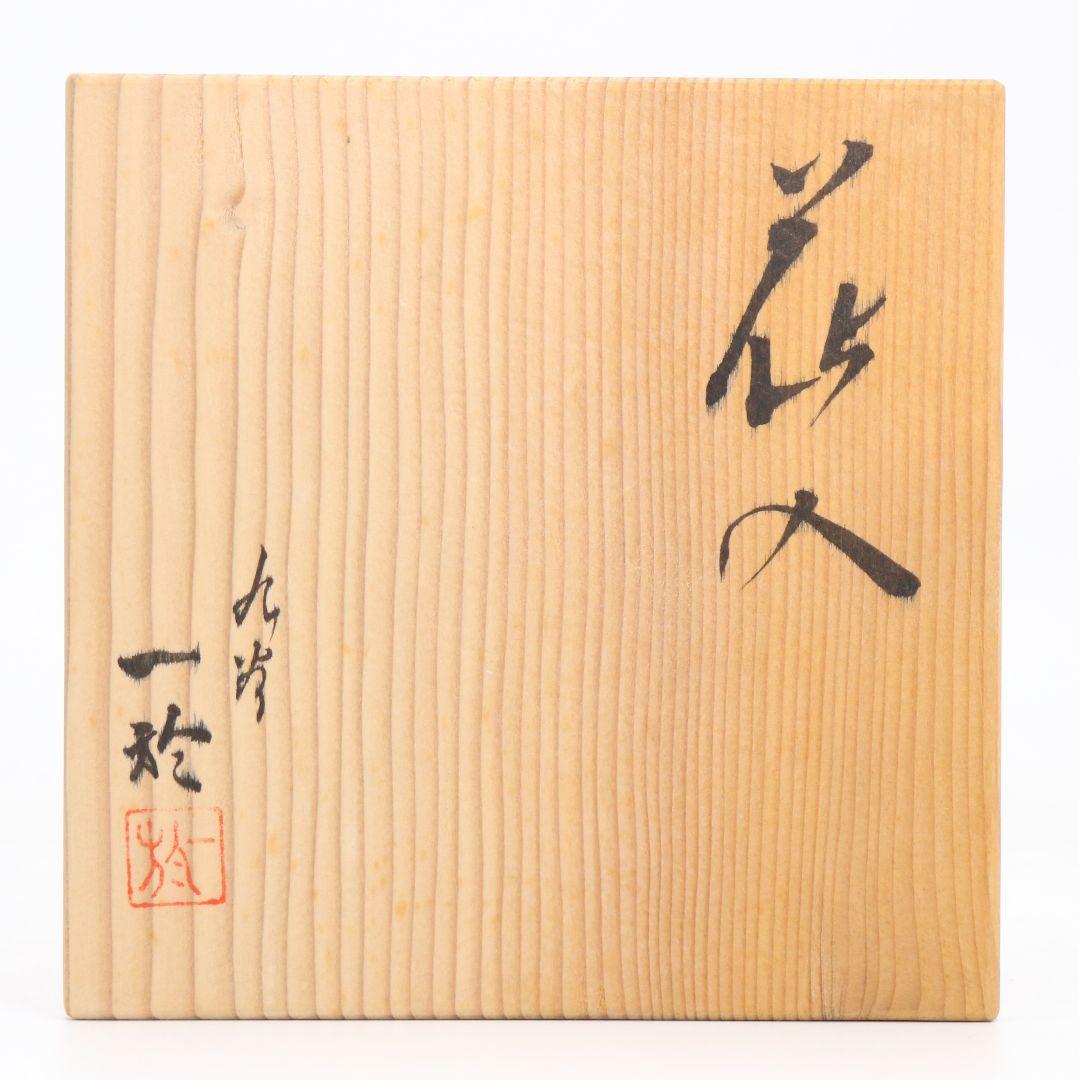 花入
九谷
一於
一於